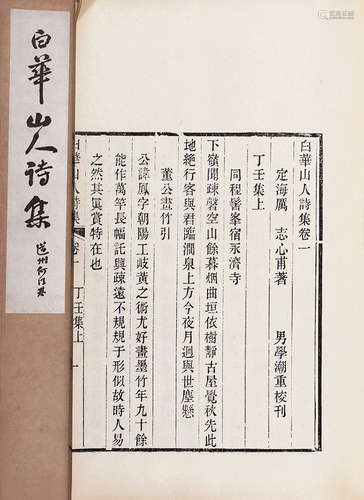 白華山人詩集
白華山人詩集卷一
定海厲 志心甫著 男學潮重校刊
丁壬集上
同程髻峯宿永濟寺
下嶺聞疎磬空山餘暮烟曲垣依樹靜古屋覺秋先此
地絶行客與君臨澗泉上方今夜月迥與世塵懸
董公畫竹引
公諱鳳字朝陽工岐黃之術尤好畫墨竹年九十餘
能作萬竿長幅託興疎遠不規規于形似故時人易
之然其眞賞特在也
白華山人詩集 卷一 丁壬集上 一